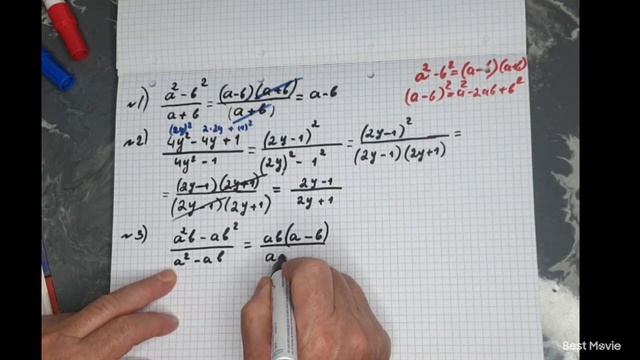 a² - b² = (a-b)(a+b)
(a-b)² = a² - 2ab + b²
№1) (a² - b²)/(a + b) = ((a-b)(a+b))/((a+b)) = a-b
(2y)² 2·2y + (1)²
№2) (4y² - 4y + 1)/(4y² - 1) = (2y-1)²/((2y)² - 1²) = (2y-1)²/((2y-1)(2y+1)) =
= ((2y-1)(2y+1))/((2y-1)(2y+1)) = (2y-1)/(2y+1)
№3) (a²b - ab²)/(a² - ab) = (ab(a-b))/a
Best Movie